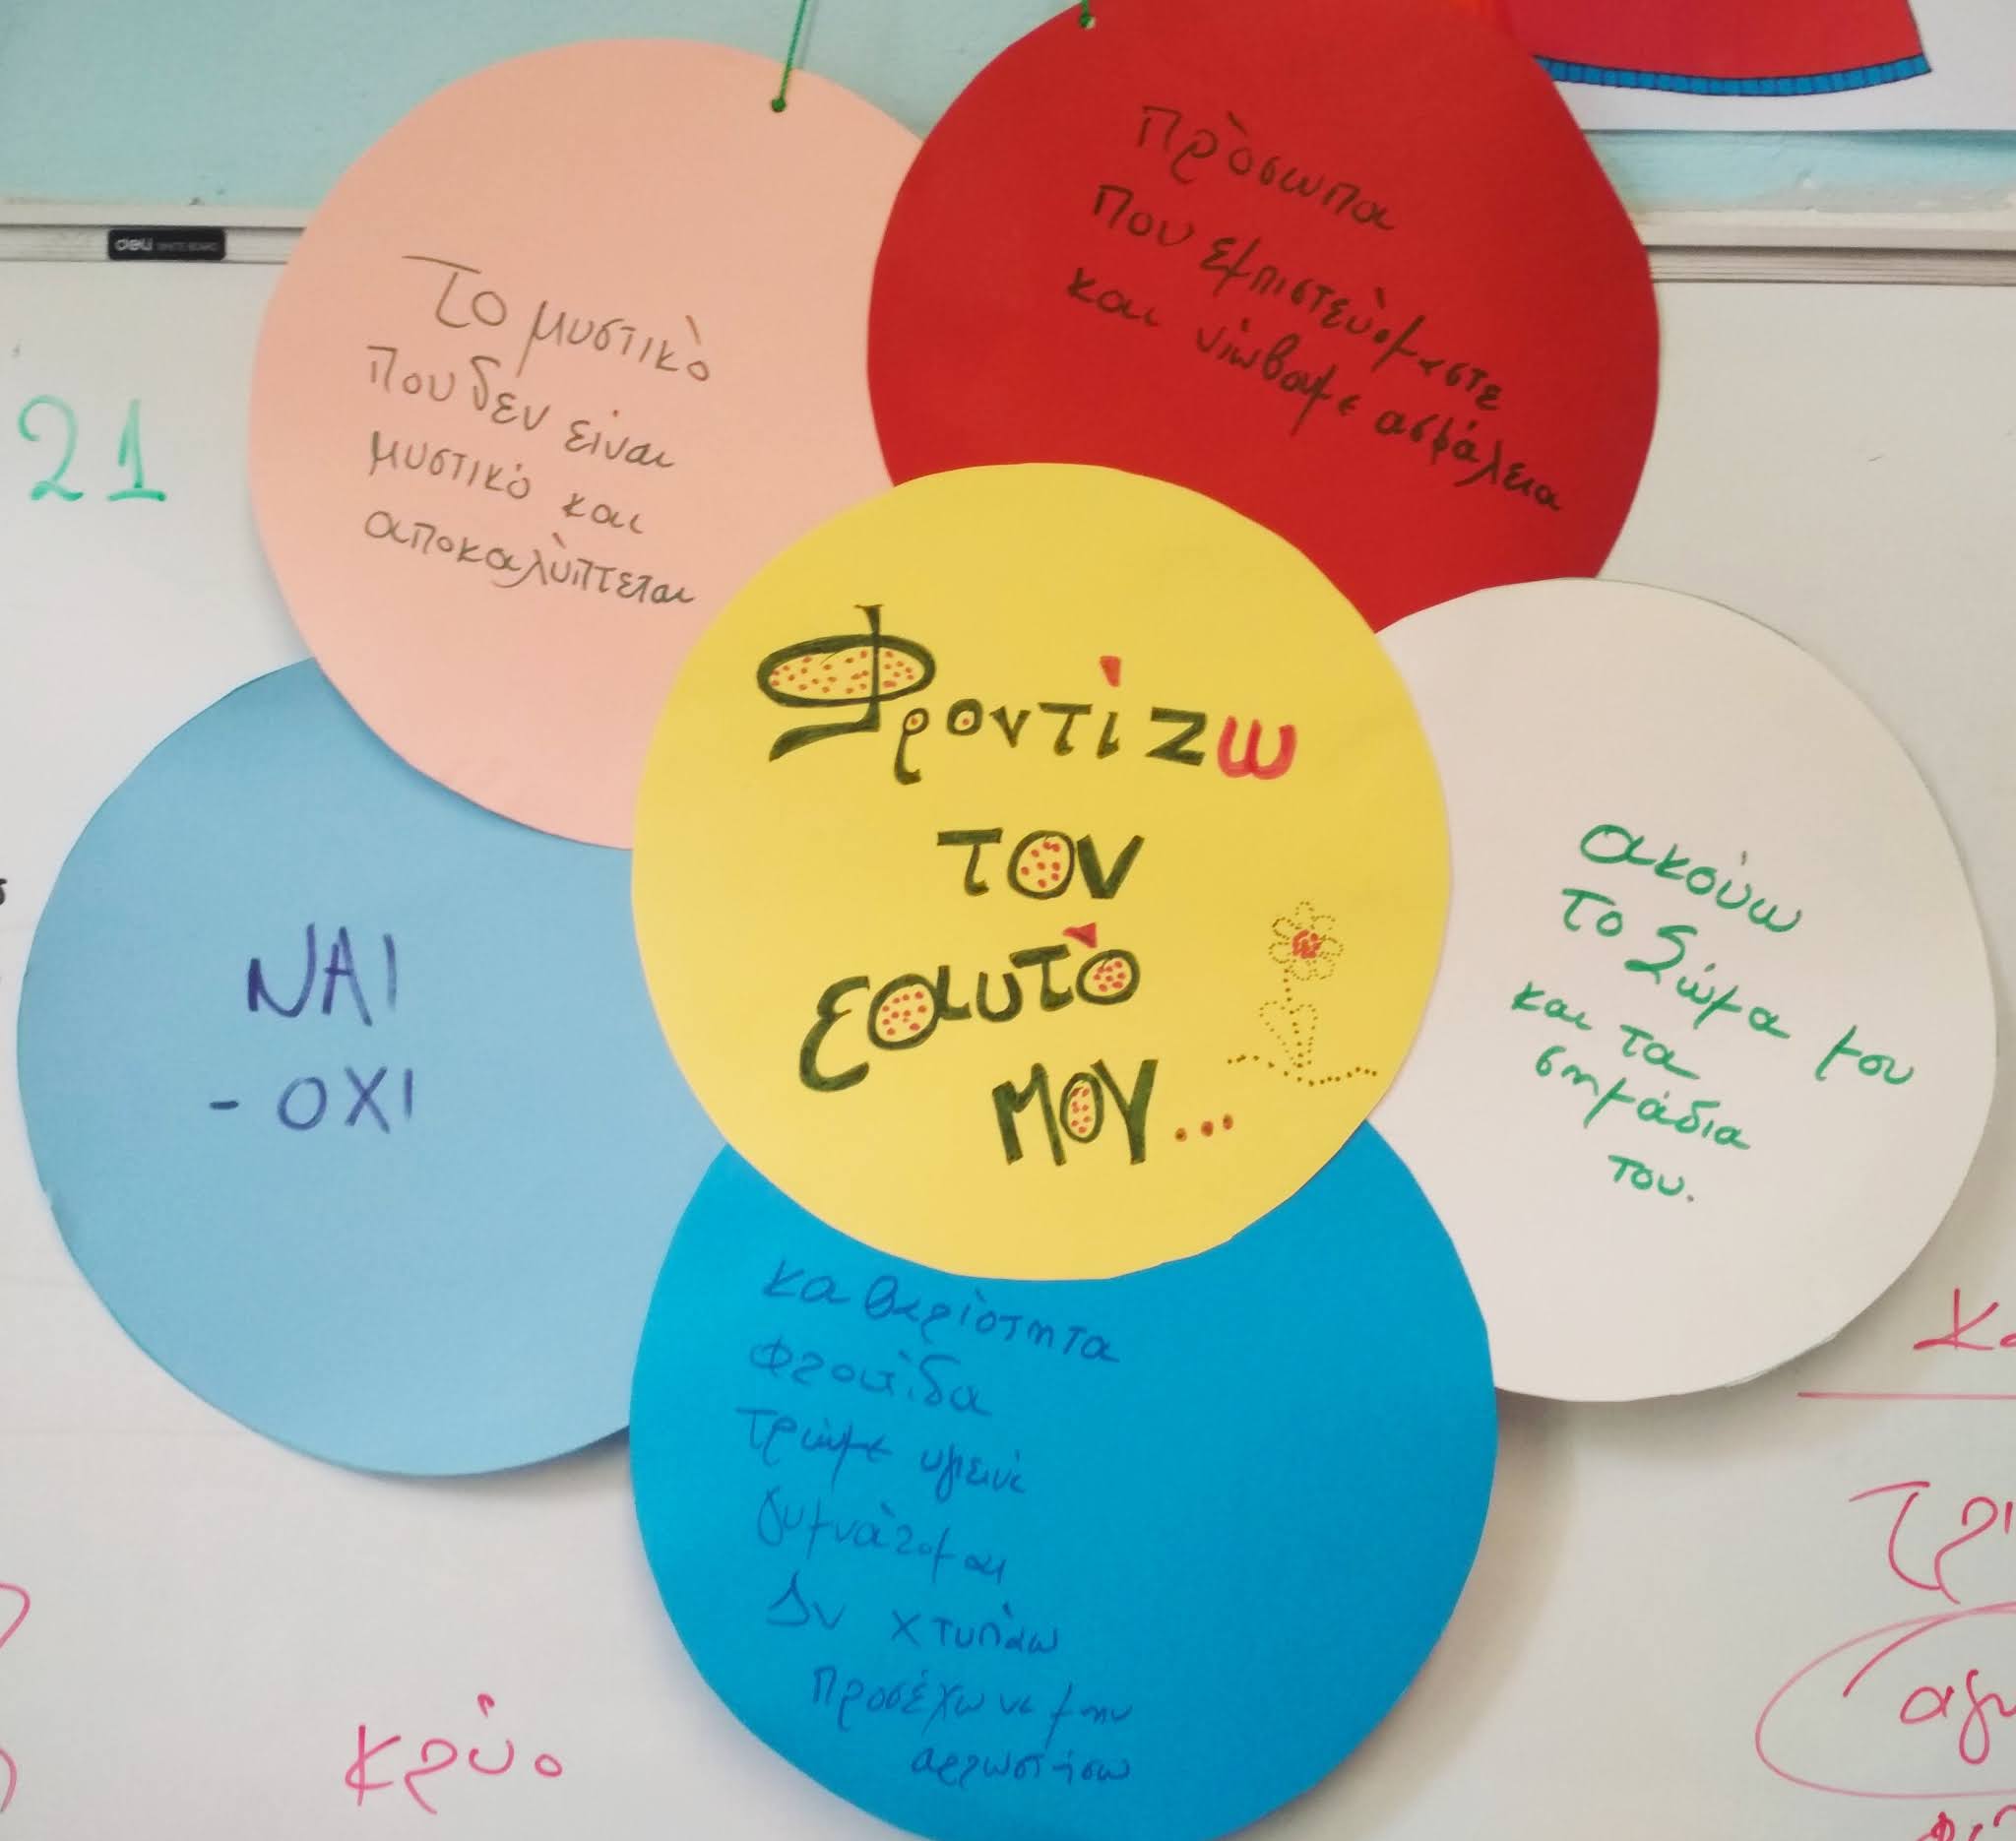 deli WHITE BOARD
21
Το μυστικό
που δεν είναι
μυστικό και
αποκαλύπτεται
Πρόσωπα
που εμπιστευόμαστε
και νιώθουμε ασφάλεια
Φροντίζω
τον
εαυτό
μου...
ΝΑΙ
- ΟΧΙ
ακούω
το Σώμα μου
και τα
σημάδια
του.
καθαριότητα
Φροντίδα
τρώμε υγιεινά
γυμνάζομαι
Δεν χτυπάω
Προσέχω να μην
αρρωστήσω
κρύο